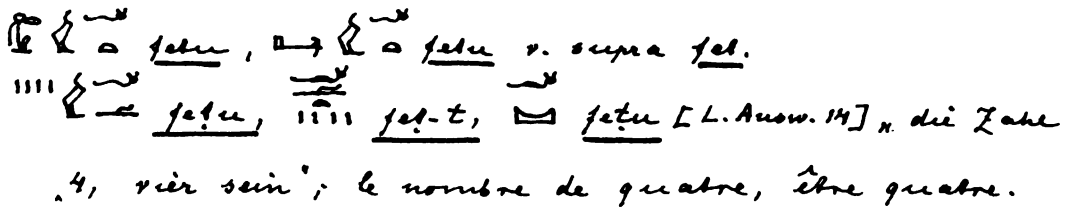 fetu, fetu v. supra fet.
feṭu, feṭ-t, feṭu [L. Ausw. 14] „ die Zahl
„4, vier sein“; le nombre de quatre, être quatre.